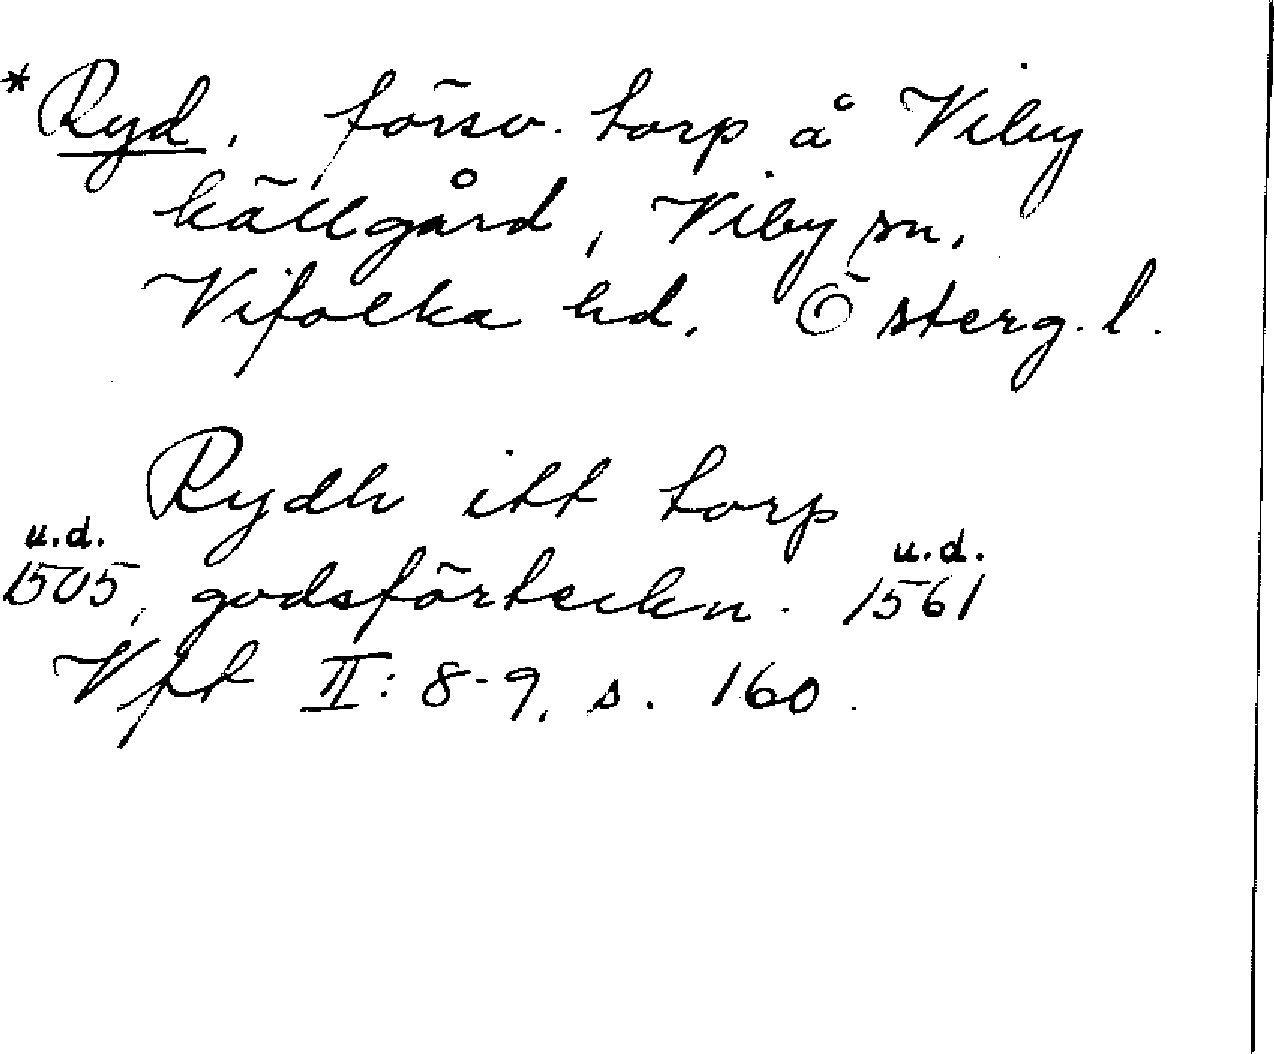 *Ryd, försv. torp å Viby
källgård, Viby sn.
Vifolka hd. Österg. l.
Rydh itt torp
u.d. u.d.
1505, godsförteckn. 1561
Vft II: 8-9, s. 160.